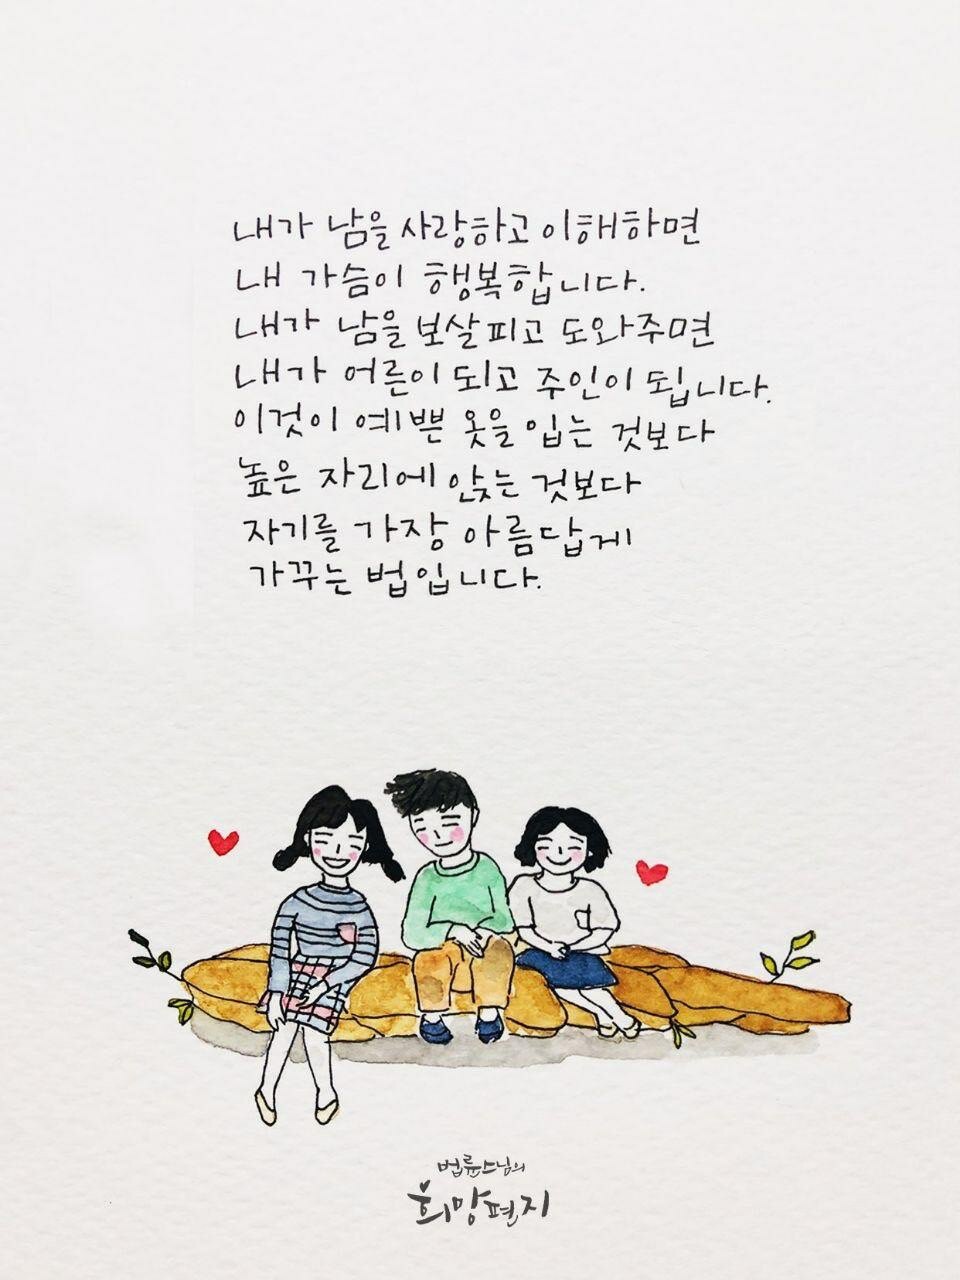 내가 남을 사랑하고 이해하면
내 가슴이 행복합니다.
내가 남을 보살피고 도와주면
내가 어른이 되고 주인이 됩니다.
이것이 예쁜 옷을 입는 것보다
높은 자리에 앉는 것보다
자기를 가장 아름답게
가꾸는 법입니다.
법륜스님의
희망편지